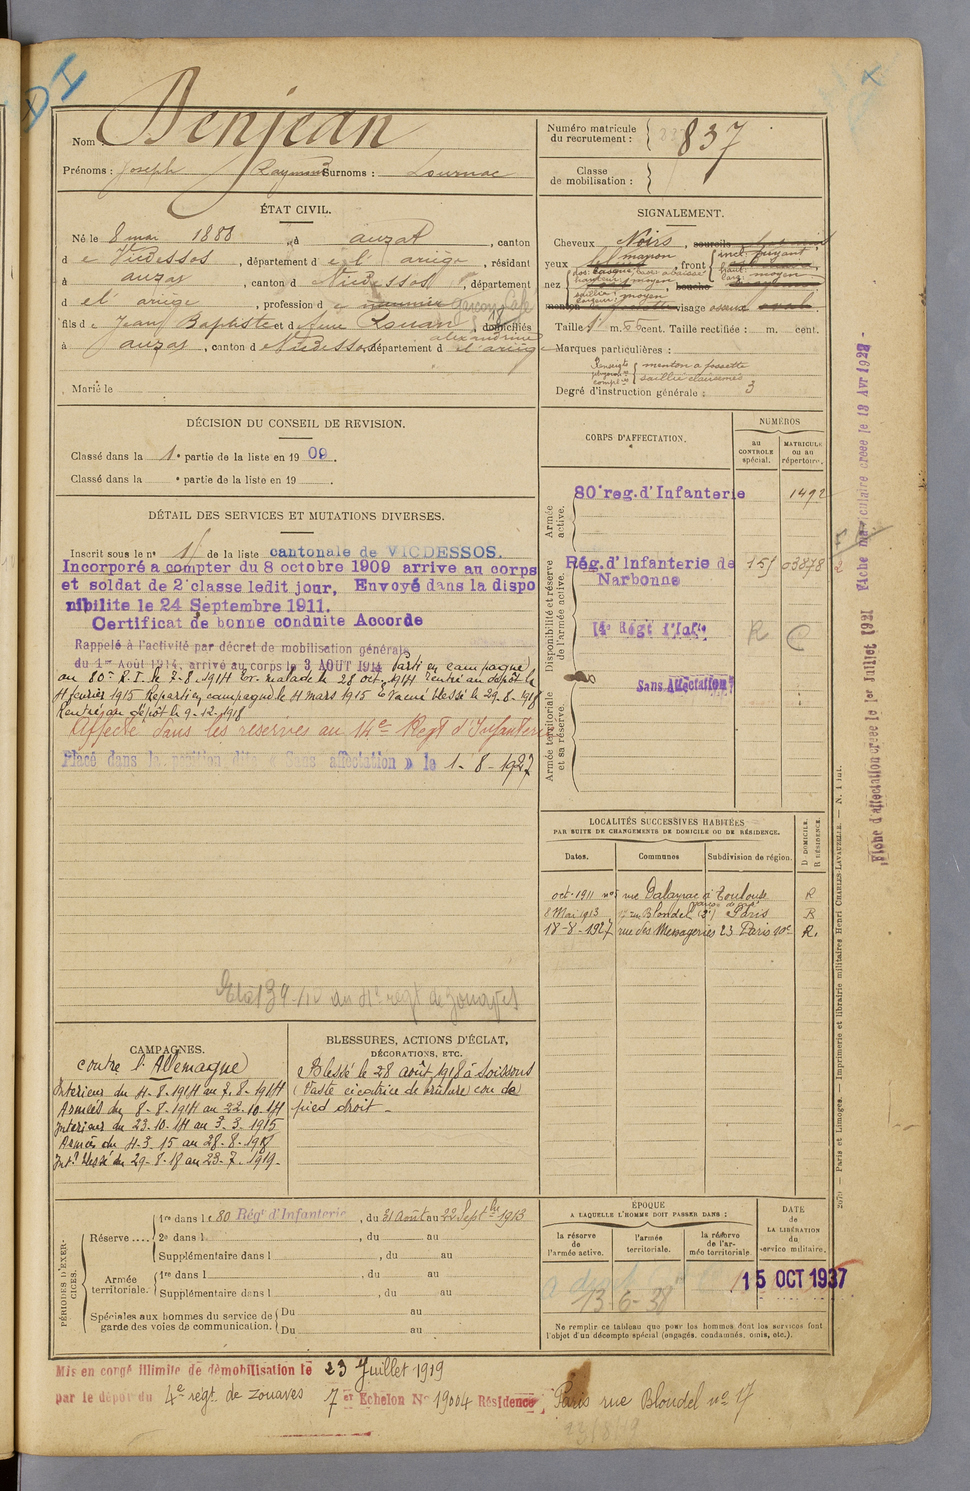 DI
Nom Denjean
Prénoms : Joseph Raymond Surnoms : Lournac
Numéro matricule du recrutement : 837
Classe de mobilisation :
ÉTAT CIVIL.
Né le 8 mai 1888, à auzat, canton
d e Vicdessos, département d e l'ariège, résidant
à auzat, canton d e Vicdessos, département
d e l'ariège, profession d e garçon Café
fils d e Jean Baptiste et d'Anne Rouan alexandrine, domiciliés
à auzat, canton d e Vicdessos, département d e l'ariège
Marié le
SIGNALEMENT.
Cheveux Noirs, sourcils
yeux marron, front incl: fuyant
nez dos: busqué moyen, bouche
menton visage osseux ovale
Taille 1 m. 55 cent. Taille rectifiée : m. cent.
Marques particulières :
menton à fossette
Degré d'instruction générale : 3
DÉCISION DU CONSEIL DE REVISION.
Classé dans la 1e partie de la liste en 1909.
Classé dans la e partie de la liste en 19 .
CORPS D'AFFECTATION.
NUMÉROS
au CONTROLE spécial.
MATRICULE ou au répertoire.
Armée active.
80e reg. d'Infanterie 1492
Disponibilité et réserve de l'armée active.
Rég. d'Infanterie de Narbonne 155 03878
14e Régt d'Infie R
Sans Affectation
Armée territoriale et sa réserve.
DÉTAIL DES SERVICES ET MUTATIONS DIVERSES.
Inscrit sous le no 15 de la liste cantonale de VICDESSOS.
Incorporé a compter du 8 octobre 1909 arrive au corps
et soldat de 2e classe ledit jour. Envoyé dans la dispo
nibilite le 24 Septembre 1911.
Certificat de bonne conduite Accorde
Rappelé à l'activité par décret de mobilisation générale
du 1er Août 1914, arrivé au corps le 3 AOUT 1914 Parti en campagne
au 80e R.I. le 7-8-1914 Ev. malade le 28 oct. 1914 rentré au dépôt le
4 février 1915 Reparti en campagne le 4 mars 1915 Evacué blessé le 29-8-1918
Rentré au dépôt le 9-12-1918
Affecté dans les réserves au 14e Regt d'Infanterie
Placé dans la position dite « Sans affectation » le 1-8-1927
au 4e regt de Zouaves
LOCALITÉS SUCCESSIVES HABITÉES
PAR SUITE DE CHANGEMENTS DE DOMICILE OU DE RÉSIDENCE.
Dates. Communes Subdivision de région. D DOMICILE. R RÉSIDENCE.
oct. 1911 no 5 rue Dalayrac à Toulouse R
8 Mai 1913 17 rue Blondel (2e) Paris R
18-8-1927 rue des Messageries 23 Paris 10e R.
CAMPAGNES.
contre l'Allemagne
Intérieur du 4-8-1914 au 7-8-1914
Armées du 8-8-1914 au 22-10-14
Intérieur du 23-10-14 au 3-3-1915
Armées du 4-3-15 au 28-8-1918
Intr blessé du 29-8-18 au 23-7-1919.
BLESSURES, ACTIONS D'ÉCLAT, DÉCORATIONS, ETC.
Blessé le 28 août 1918 à Soissons
(Vaste cicatrice de brûlure) cou de
pied droit -
PÉRIODES D'EXERCICES.
Réserve....
1re dans le 80 Régt d'Infanterie, du 31 Août au 22 Septbre 1913
2e dans l , du au
Supplémentaire dans l , du au
Armée territoriale.
1re dans l , du au
Supplémentaire dans l , du au
Spéciales aux hommes du service de garde des voies de communication.
Du au
Du au
ÉPOQUE
A LAQUELLE L'HOMME DOIT PASSER DANS :
la réserve de l'armée active.
l'armée territoriale.
la réserve de l'armée territoriale.
DATE de LA LIBÉRATION du service militaire.
13-6-38
15 OCT 1937
Ne remplir ce tableau que pour les hommes dont les services font l'objet d'un décompte spécial (engagés, condamnés, omis, etc.).
Mis en congé illimité de démobilisation le 23 Juillet 1919
par le dépôt du 4e régt. de zouaves 7e Echelon No 19004 Résidence Paris rue Blondel no 17
Fiche d'affectation créée le 1er Juillet 1921
Fiche matriculaire créée le 18 Avr 1922 -
2070 — Paris et Limoges. — Imprimerie et librairie militaires Henri CHARLES-LAVAUZELLE. — N. 1 int.